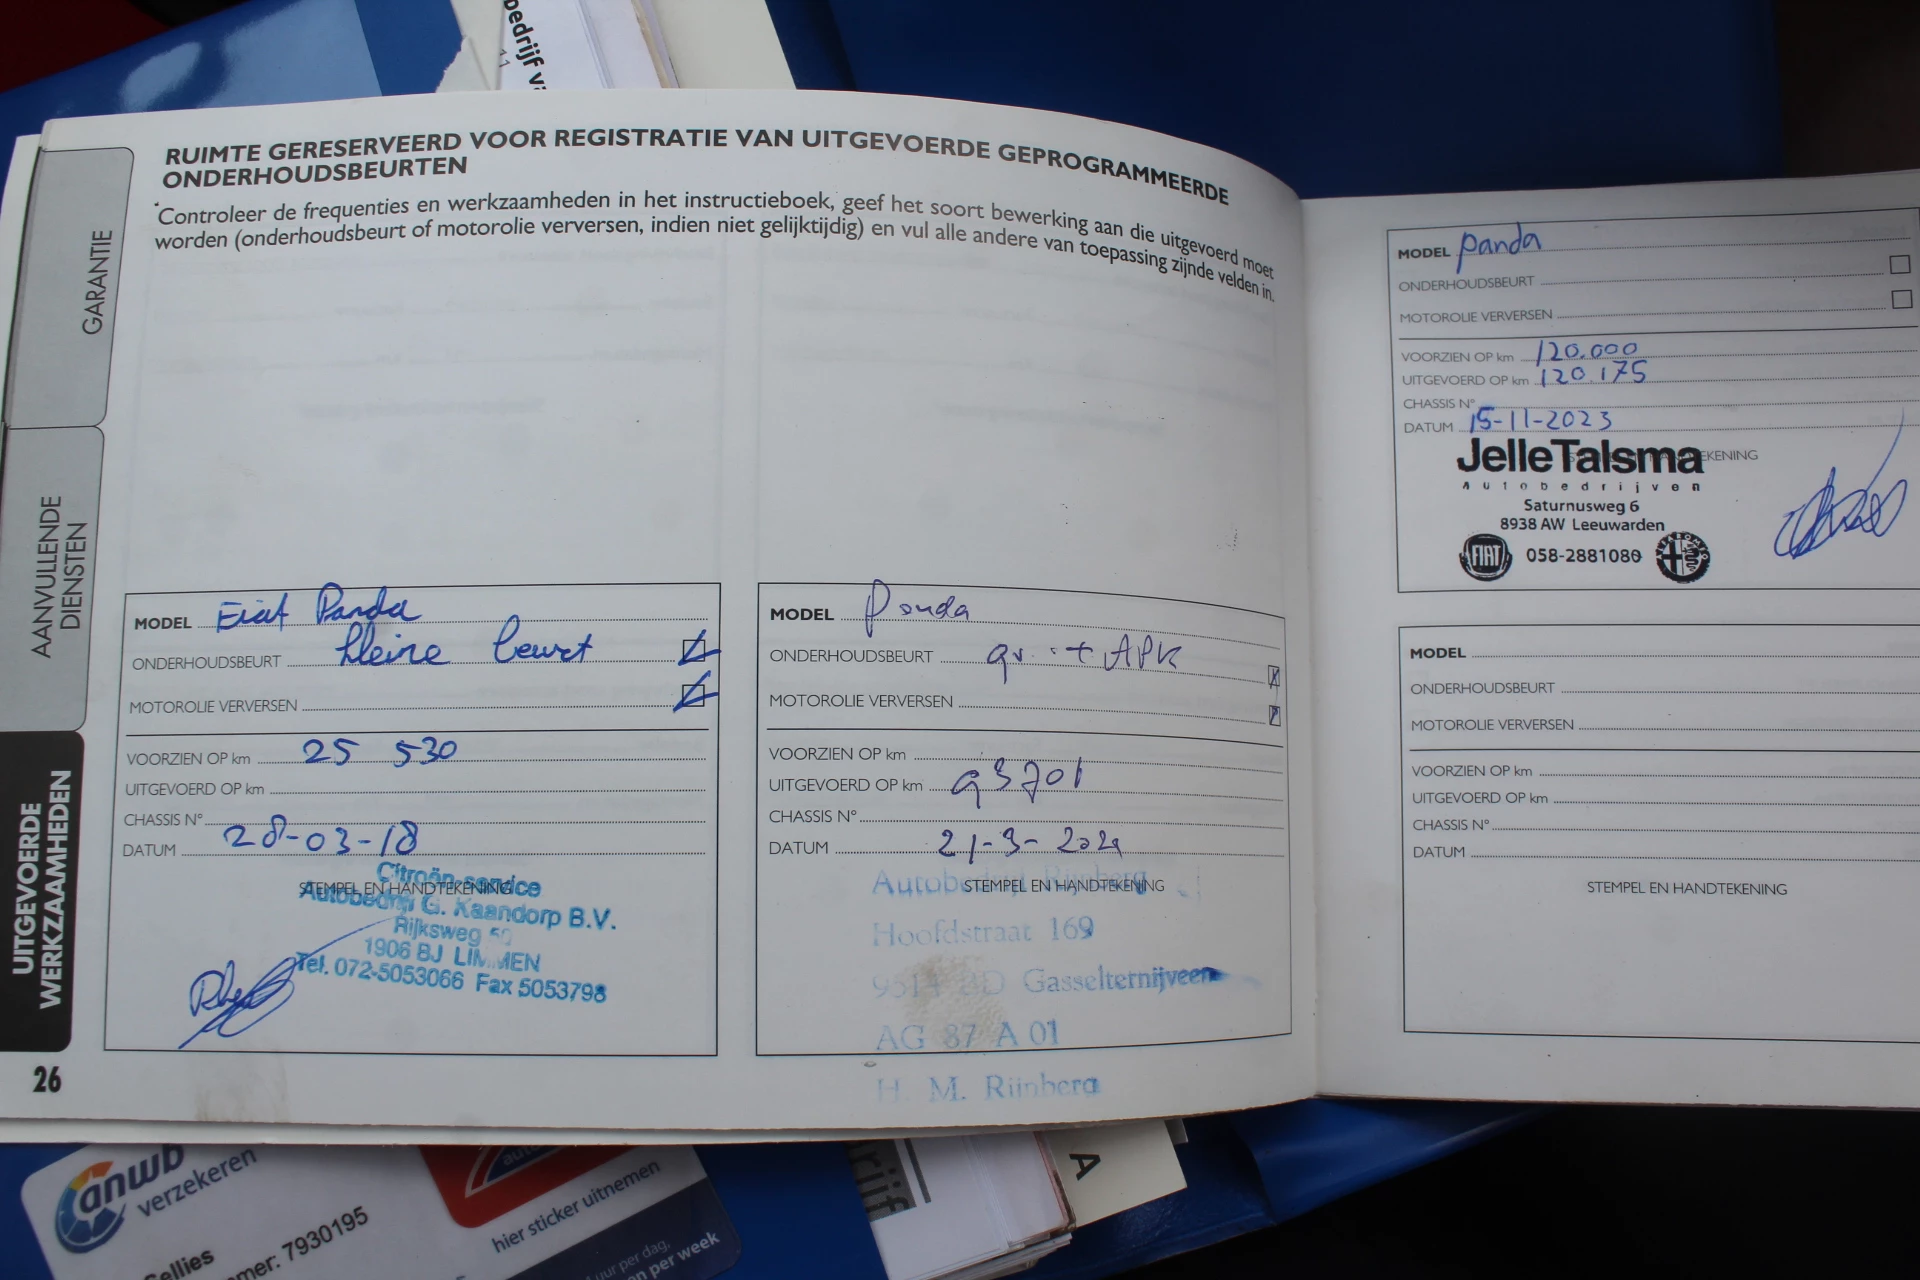 bedrijf va
11
RUIMTE GERESERVEERD VOOR REGISTRATIE VAN UITGEVOERDE GEPROGRAMMEERDE
ONDERHOUDSBEURTEN
Controleer de frequenties en werkzaamheden in het instructieboek, geef het soort bewerking aan die uitgevoerd moet
worden (onderhoudsbeurt of motorolie verversen, indien niet gelijktijdig) en vul alle andere van toepassing zijnde velden in.
GARANTIE
AANVULLENDE
DIENSTEN
UITGEVOERDE
WERKZAAMHEDEN
26
MODEL Fiat Panda
ONDERHOUDSBEURT kleine beurt
MOTOROLIE VERVERSEN
VOORZIEN OP km 25 530
UITGEVOERD OP km
CHASSIS N°
DATUM 28-03-18
STEMPEL EN HANDTEKENING
Citroën-service
Autobedrijf G. Kaandorp B.V.
Rijksweg
1906 BJ LIMMEN
Tel. 072-5053066 Fax 5053798
MODEL Panda
ONDERHOUDSBEURT + APK
MOTOROLIE VERVERSEN
VOORZIEN OP km
UITGEVOERD OP km 93701
CHASSIS N°
DATUM
STEMPEL EN HANDTEKENING
Autobedrijf Rijnberg
Hoofdstraat 169
Gasselternijveen
AG 87 A 01
H. M. Rijnberg
MODEL panda
ONDERHOUDSBEURT
MOTOROLIE VERVERSEN
VOORZIEN OP km 120.000
UITGEVOERD OP km 120.175
CHASSIS N°
DATUM 15-11-2023
STEMPEL EN HANDTEKENING
JelleTalsma
Autobedrijven
Saturnusweg 6
8938 AW Leeuwarden
FIAT 058-2881080
MODEL
ONDERHOUDSBEURT
MOTOROLIE VERVERSEN
VOORZIEN OP km
UITGEVOERD OP km
CHASSIS N°
DATUM
STEMPEL EN HANDTEKENING
anwb
verzekeren
hier sticker uitnemen
Sellies
mer: 7930195
uur per dag,
en per week
rijf
A